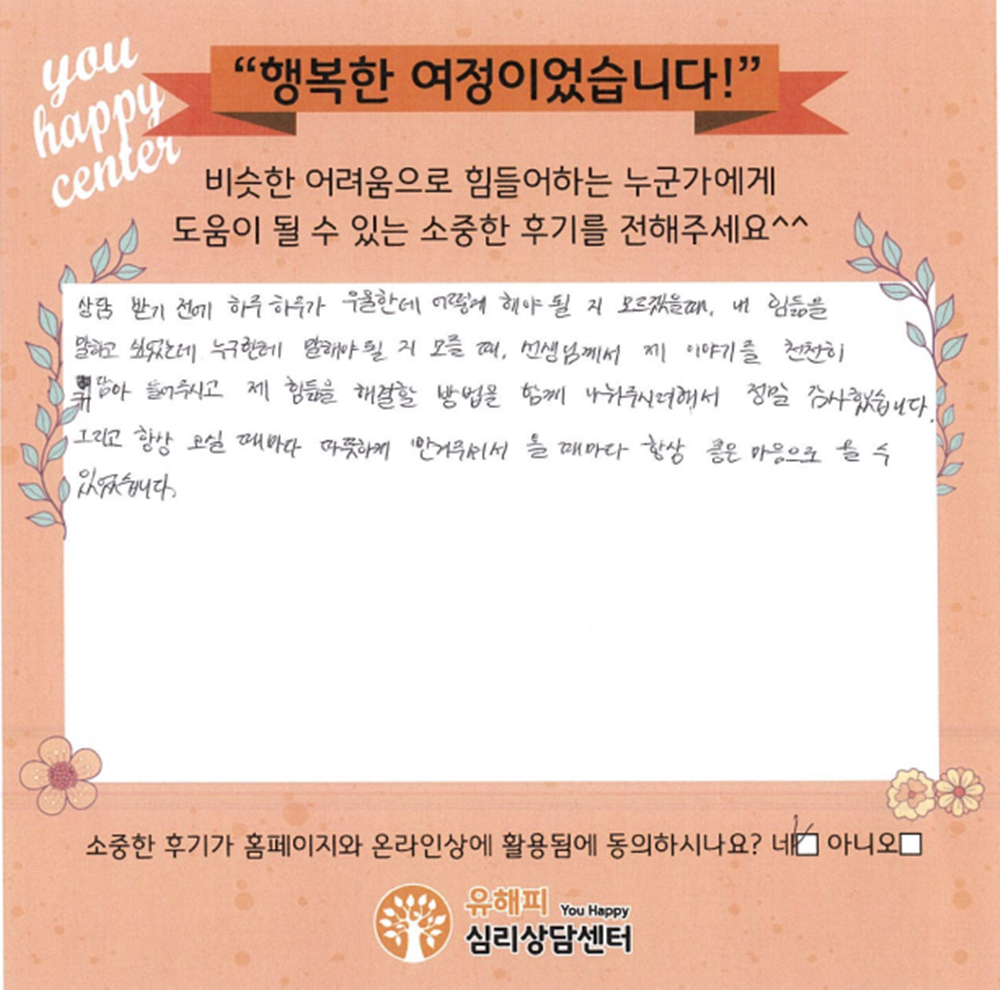 you
happy
center
“행복한 여정이었습니다!”
비슷한 어려움으로 힘들어하는 누군가에게
도움이 될 수 있는 소중한 후기를 전해주세요^^
상담 받기 전에 하루 하루가 우울한데 어떻게 해야 될 지 모르겠을때, 내 힘듦을
말하고 싶었는데 누구한테 말해야 될 지 모를 때, 선생님께서 제 이야기를 천천히
담아 들어주시고 제 힘듦을 해결할 방법을 함께 나눠주시려해서 정말 감사했습니다.
그리고 항상 오실 때마다 따뜻하게 반겨주셔서 올 때마다 항상 좋은 마음으로 올 수
있었습니다.
소중한 후기가 홈페이지와 온라인상에 활용됨에 동의하시나요? 네 아니오
유해피 You Happy
심리상담센터